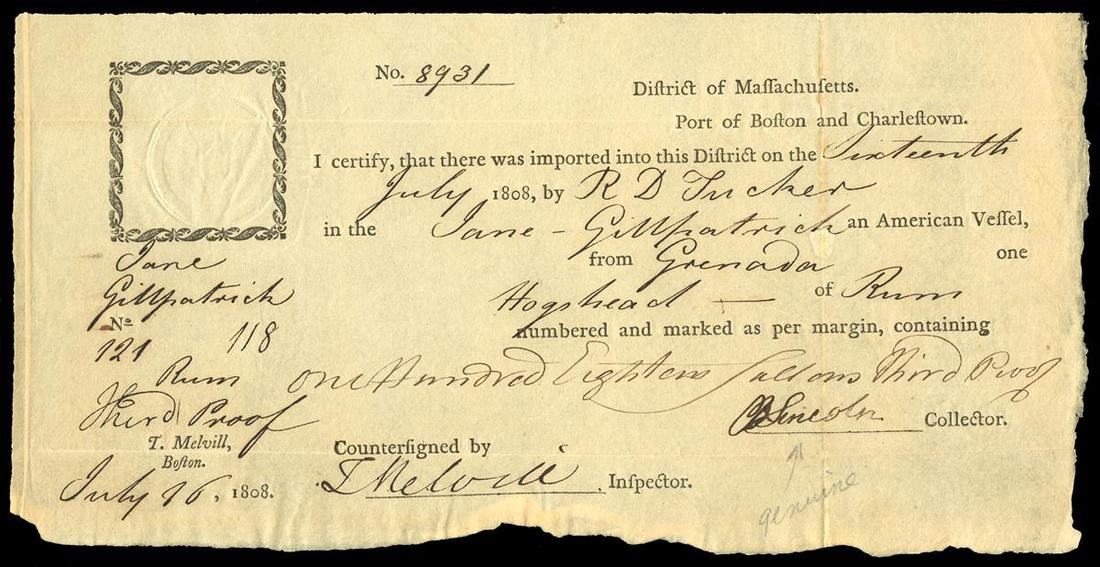 No. 8931
Diſtrict of Maſſachuſetts.
Port of Boſton and Charleſtown.
I certify, that there was imported into this Diſtrict on the Sixteenth
July 1808, by R D Tucker
in the Jane - Gillpatrick an American Veſſel,
from Grenada one
Hogshead — of Rum
numbered and marked as per margin, containing
one Hundred Eighteen Gallons Third Proof
Jane
Gillpatrick
No
121 118
Rum
Third Proof
T. Melvill,
Boſton.
July 16, 1808.
B Lincoln Collector.
Counterſigned by
T Melvill. Inſpector.
genuine